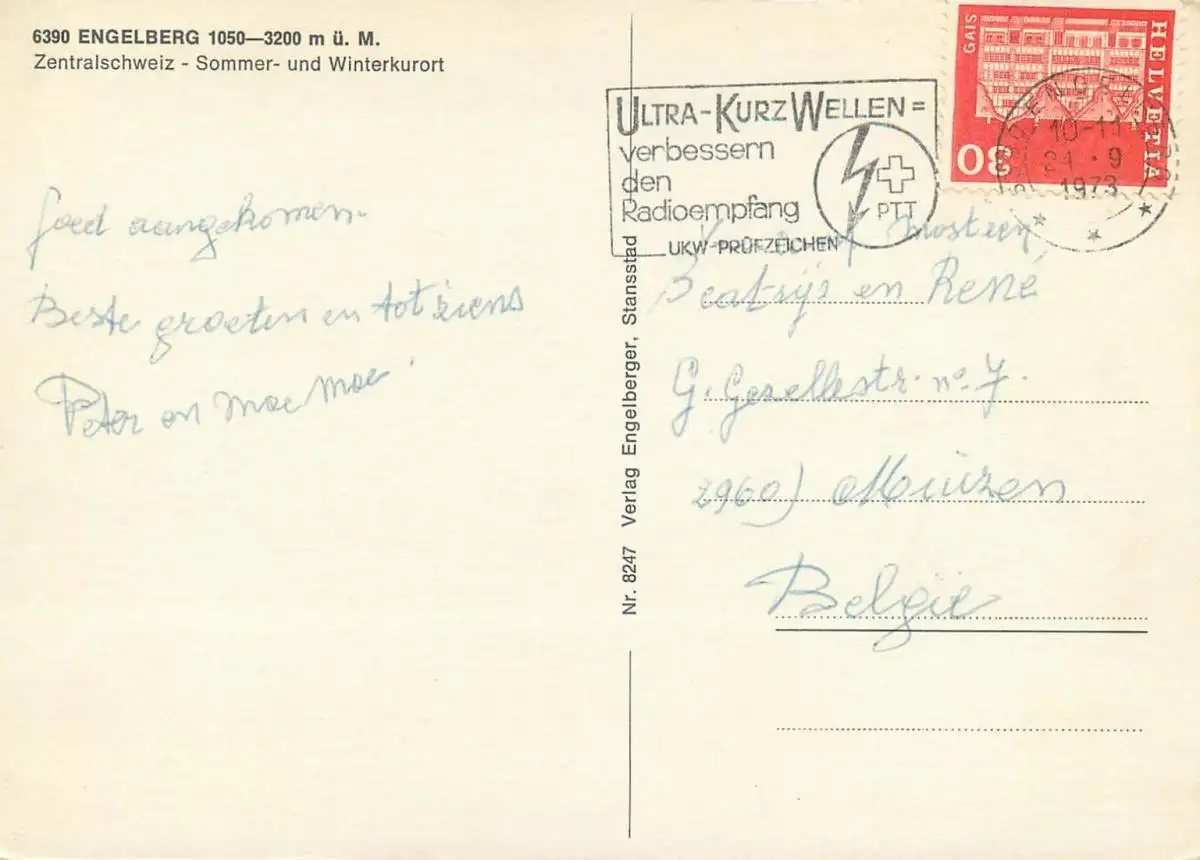 6390 ENGELBERG 1050—3200 m ü. M.
Zentralschweiz - Sommer- und Winterkurort
Goed aangekomen.
Beste groeten en tot ziens
Peter en Moe Moe
Nr. 8247 Verlag Engelberger, Stansstad
ULTRA-KURZWELLEN =
verbessern
den
Radioempfang
UKW-PRÜFZEICHEN
PTT
HELVETIA
GAIS
30
10-11
24 • 9
1973
Beatrijs en René
G. Gezellestr. no 7.
2960) Muizen
België